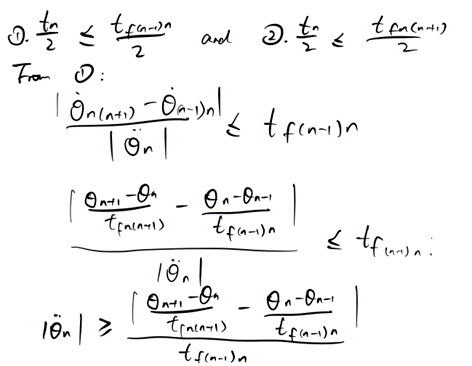 ①. tₙ/2 ≤ t_{f(n-1)n}/2 and ②. tₙ/2 ≤ t_{fn(n+1)}/2
From ①:
|θ̇_{n(n+1)} - θ̇_{(n-1)n}| / |θ̈ₙ| ≤ t_{f(n-1)n}
|(θ_{n+1} - θₙ)/t_{fn(n+1)} - (θₙ - θ_{n-1})/t_{f(n-1)n}| / |θ̈ₙ| ≤ t_{f(n-1)n} :
|θ̈ₙ| ≥ |(θ_{n+1} - θₙ)/t_{fn(n+1)} - (θₙ - θ_{n-1})/t_{f(n-1)n}| / t_{f(n-1)n}